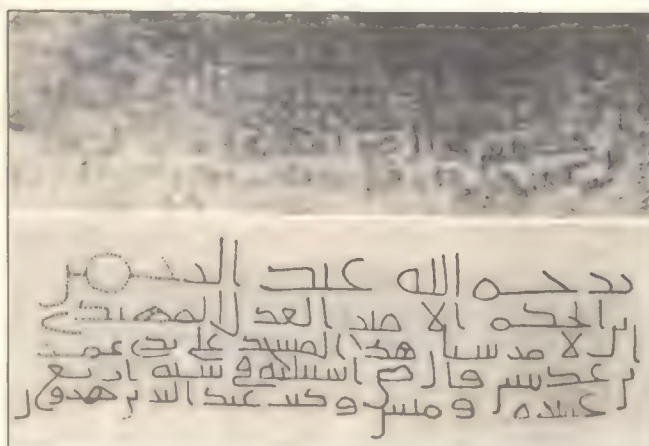 يرحم الله عبد الرحمن
بن الحكم الامير العدل المهتدي
الامر ببنيان هذا المسجد على يدي عمر
بن عدبس قاضي اشبيلية في سنة اربع
عشرة ومئتين وكتب عبد البر بن هرون